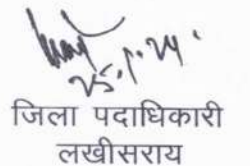 25.1.24
जिला पदाधिकारी
लखीसराय